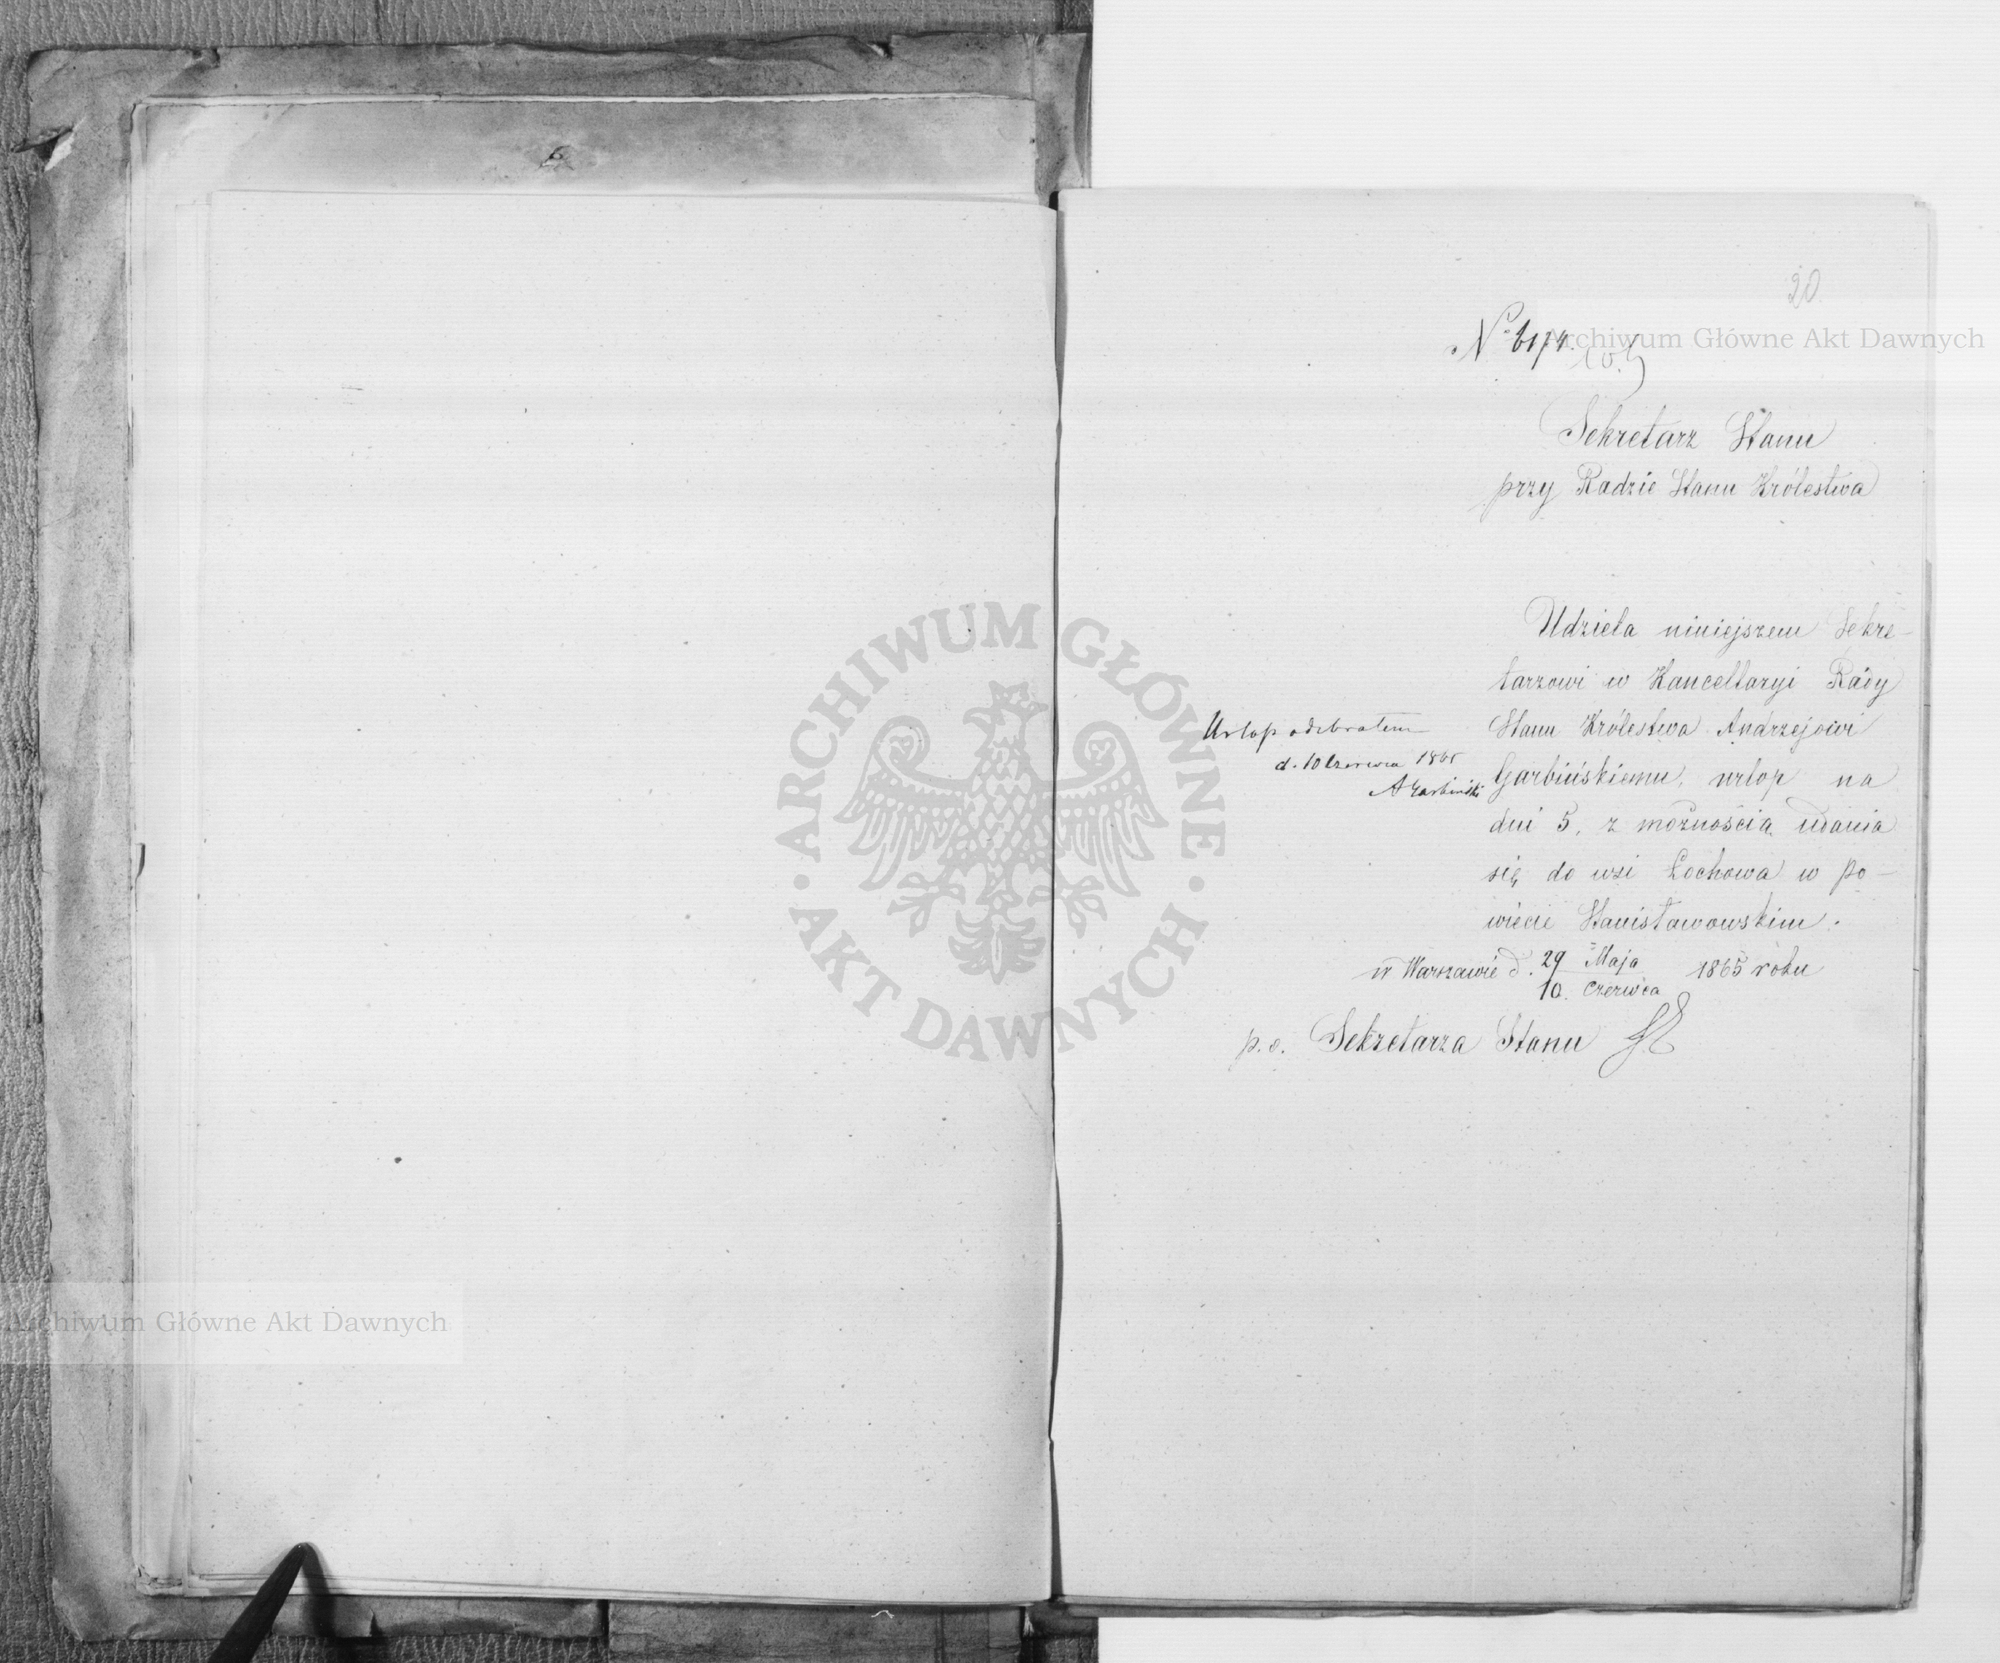 20
Archiwum Główne Akt Dawnych
Sekretarz Stanu
przy Radzie Stanu Królestwa
Udziela niniejszem Sekre-
tarzowi w Kancellaryi Rady
Stanu Królestwa Andrzejowi
Garbińskiemu, urlop na
dni 5, z możnością udania
się do wsi Łochowa w po-
wiecie Stanisławowskim.
w Warszawie d. 29 Maja 1865 roku
10. Czerwca
p. o. Sekretarza Stanu
Urlop odebrałem
d. 10 Czerwca 1865
A Garbiński
ARCHIWUM GŁÓWNE
AKT DAWNYCH
Archiwum Główne Akt Dawnych